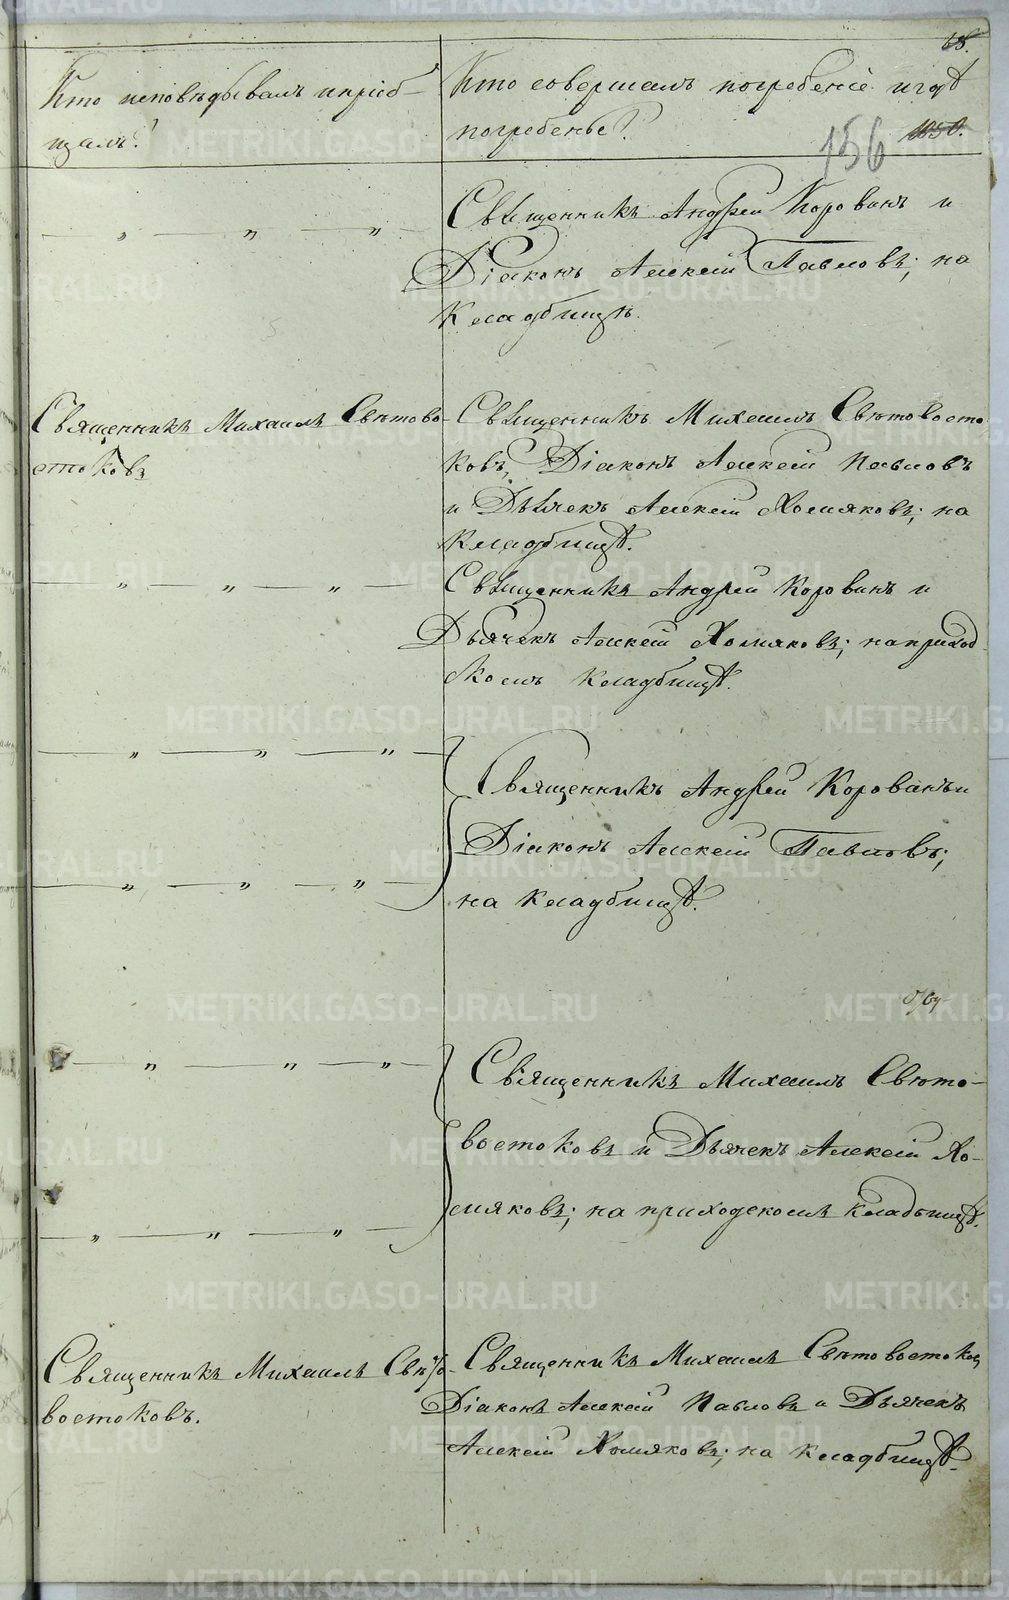 68.
Кто исповѣдывалъ и пріоб-
щалъ?
Кто совершалъ погребеніе и гдѣ
погребены?
1050.
156
Священникъ Андрей Корованъ и
Діаконъ Алексій Павловъ; на
Кладбищѣ.
Священникъ Михаилъ Свѣтово-
стоковъ
Священникъ Михаилъ Свѣтовосто-
ковъ, Діаконъ Алексій Павловъ
и Дьячекъ Алексій Холмяковъ; на
Кладбищѣ.
Священникъ Андрей Корованъ и
Дьячекъ Алексій Холмяковъ; на приход-
скомъ Кладбищѣ.
Священникъ Андрей Корованъ и
Діаконъ Алексій Павловъ;
на Кладбищѣ.
Священникъ Михаилъ Свѣто-
востоковъ и Дьячекъ Алексій Хо-
лмяковъ; на приходскомъ Кладбищѣ.
Священникъ Михаилъ Свѣто-
востоковъ.
Священникъ Михаилъ Свѣтовостоковъ
Діаконъ Алексій Павловъ и Дьячекъ
Алексій Холмяковъ; на Кладбищѣ.
METRIKI.GASO-URAL.RU